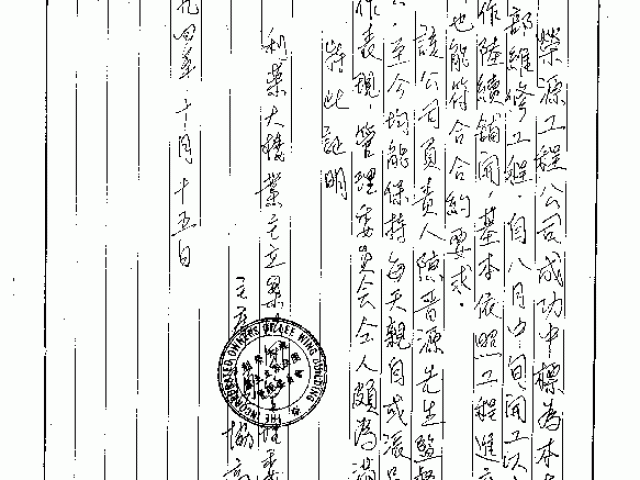 榮源工程公司成功中標為本
部維修工程，自八月中旬開工以
作陸續鋪開，基本依照工程進
也能符合合約要求。
該公司負責人陳晋源先生監督
至今均能保持每天親自或派
作表現，管理委員会仝人頗為滿
特此証明
利榮大樓業主立案
主
協
九四年十月十五日
THE INCORPORATED OWNERS OF LEE WING BUILDING